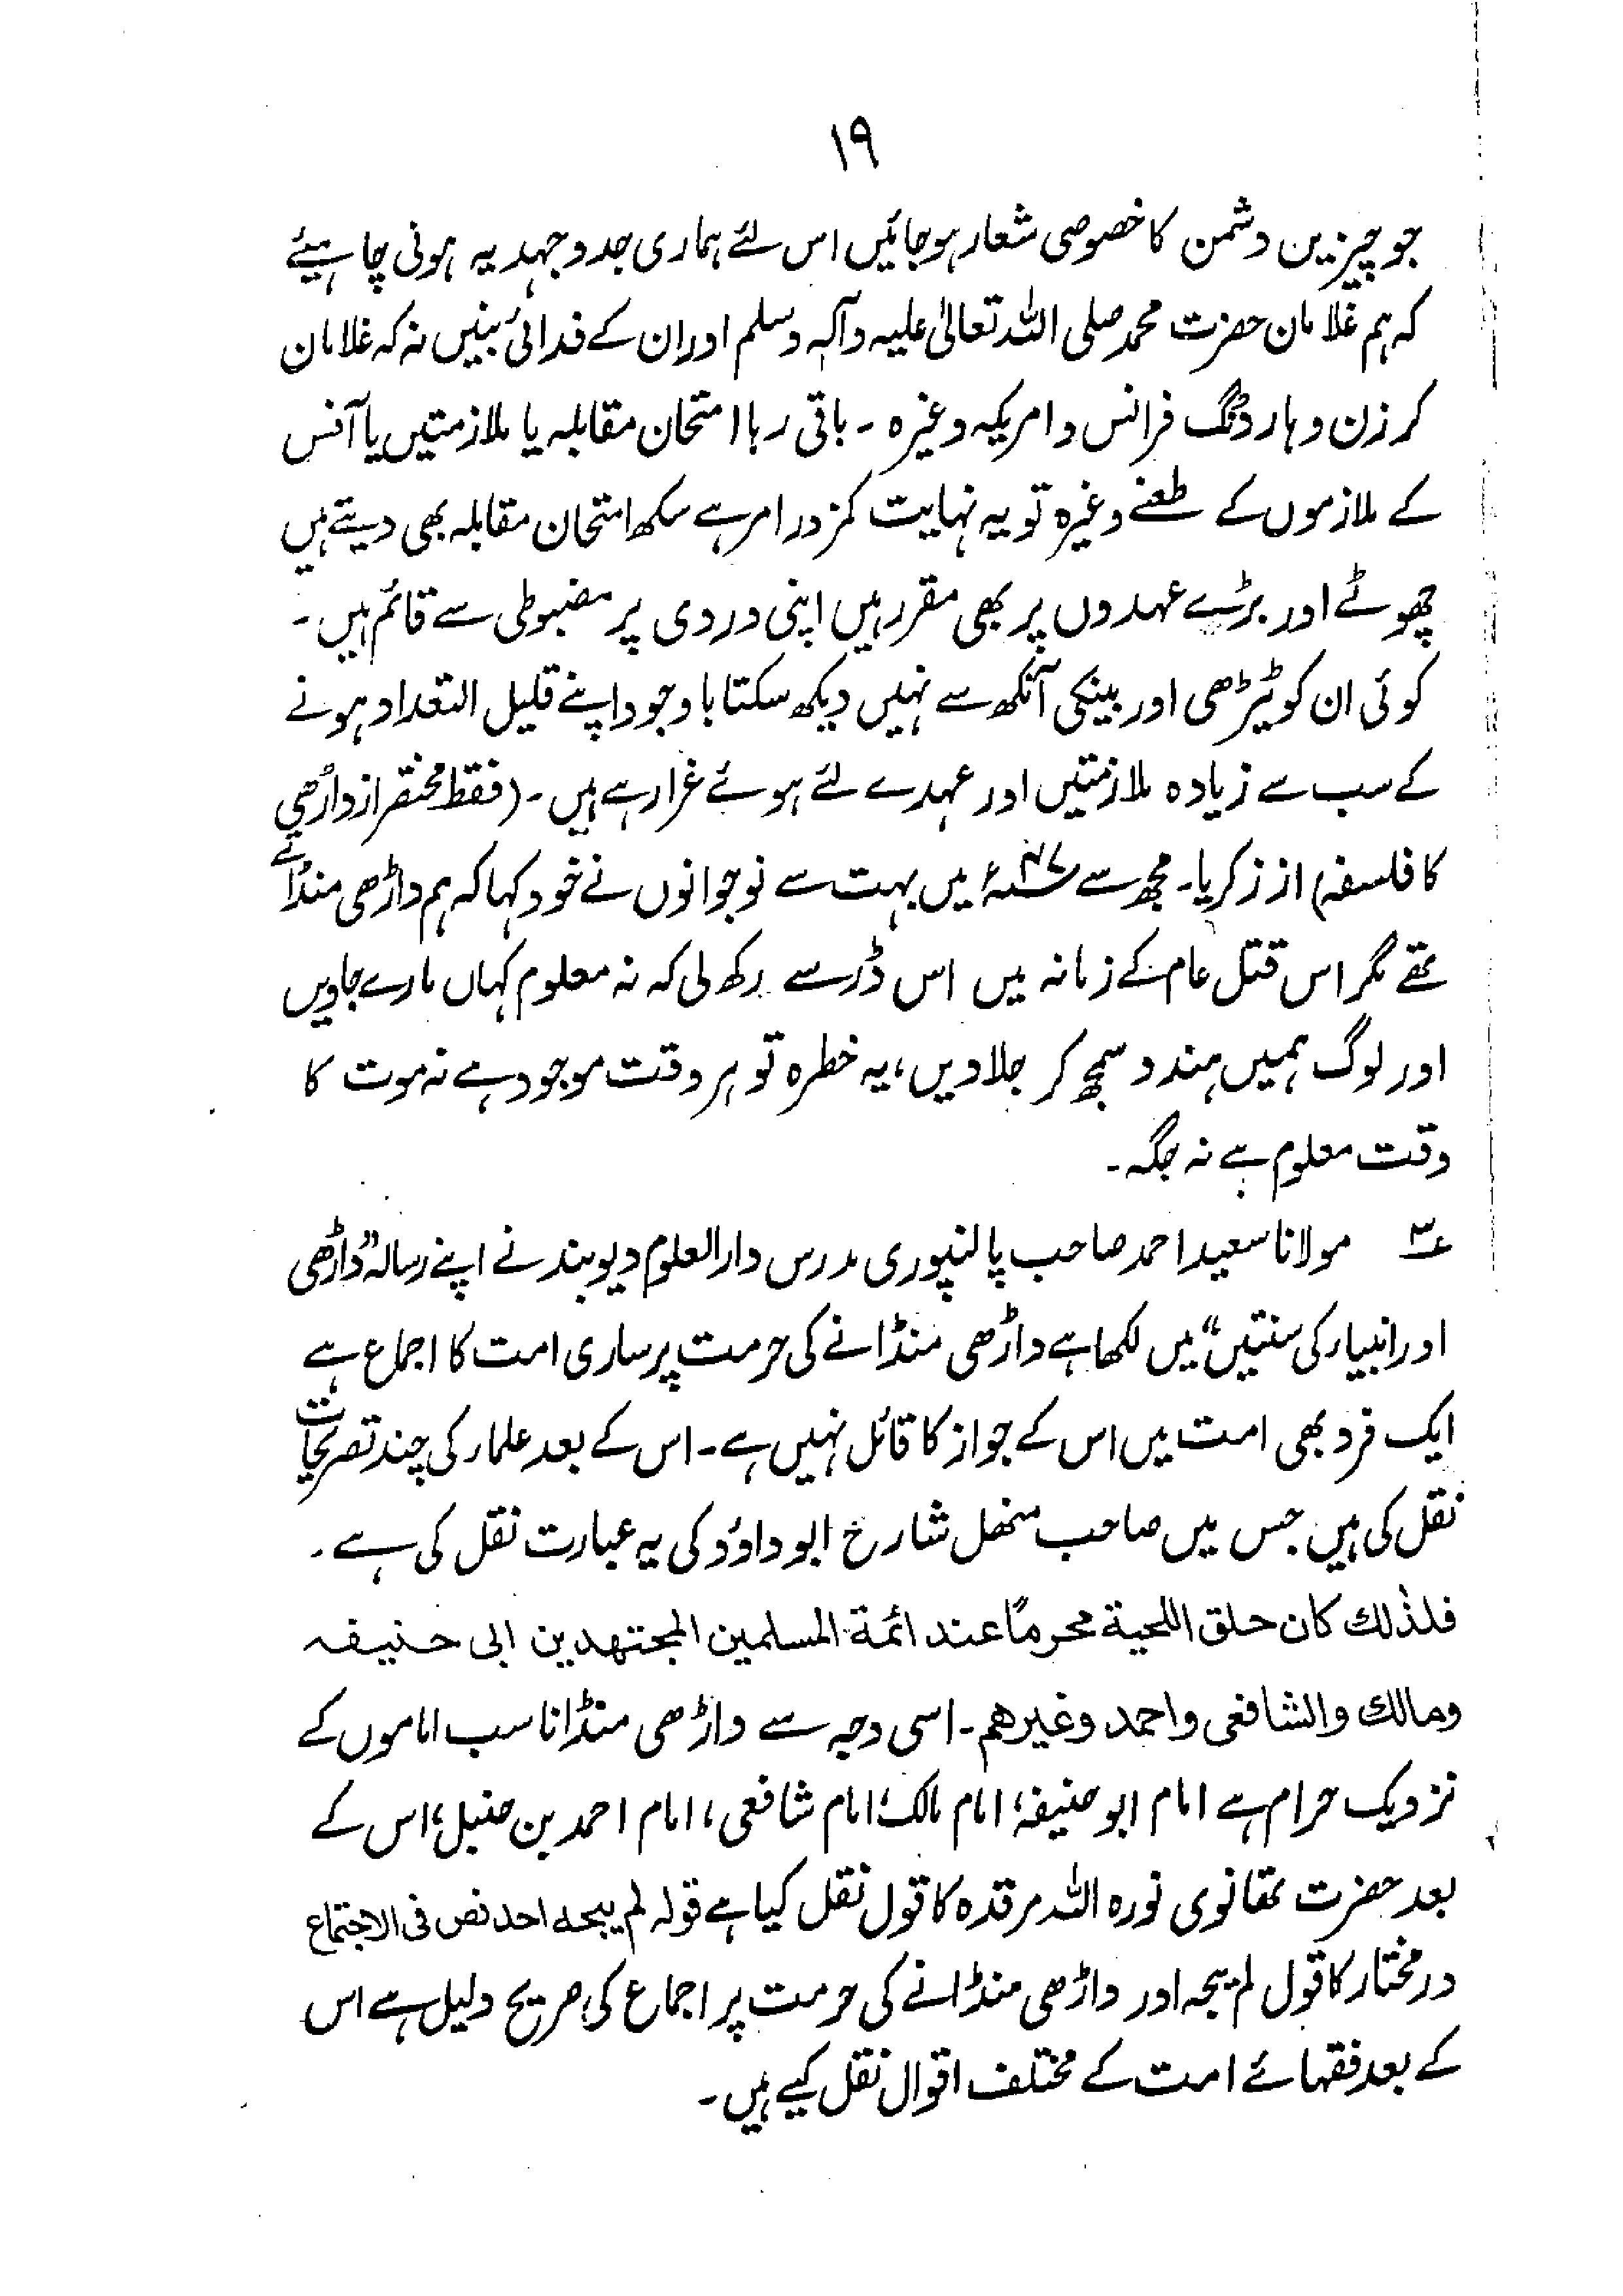 ۱۹
جو چیزیں دشمن کا خصوصی شعار ہو جائیں اس لئے ہماری جد و جہد یہ ہونی چاہیئے
کہ ہم غلامان حضرت محمد صلی اللہ تعالیٰ علیہ وآلہ وسلم اور ان کے فدائی بنیں نہ کہ غلامان
کرزن و ہارڈنگ فرانس و امریکہ وغیرہ ۔ باقی رہا امتحان مقابلہ یا ملازمتیں یا آفس
کے ملازموں کے طعنے وغیرہ تو یہ نہایت کمزور امر ہے سکھ امتحان مقابلہ بھی دیتے ہیں
چھوٹے اور بڑے عہدوں پر بھی مقرر ہیں اپنی وردی پر مضبوطی سے قائم ہیں ۔
کوئی ان کو ٹیڑھی اور بینکی آنکھ سے نہیں دیکھ سکتا باوجود اپنے قلیل التعداد ہونے
کے سب سے زیادہ ملازمتیں اور عہدے لئے ہوئے غرا رہے ہیں ۔ (فقط مختصر از داڑھی
کا فلسفہ) از زکریا ۔ مجھ سے ۴۷ء میں بہت سے نوجوانوں نے خود کہا کہ ہم داڑھی منڈاتے
تھے مگر اس قتل عام کے زمانہ میں اس ڈر سے رکھ لی کہ نہ معلوم کہاں مارے جاویں
اور لوگ ہمیں ہندو سمجھ کر جلا دیں، یہ خطرہ تو ہر وقت موجود ہے نہ موت کا
وقت معلوم ہے نہ جگہ ۔
؏۳ مولانا سعید احمد صاحب پالنپوری مدرس دارالعلوم دیوبند نے اپنے رسالہ "داڑھی
اور انبیاء کی سنتیں" میں لکھا ہے داڑھی منڈانے کی حرمت پر ساری امت کا اجماع ہے
ایک فرد بھی امت میں اس کے جواز کا قائل نہیں ہے ۔ اس کے بعد علماء کی چند تصریحات
نقل کی ہیں جس میں صاحب منھل شارح ابوداؤد کی یہ عبارت نقل کی ہے ۔
فلذٰلك كان حلق اللحية محرمًا عند ائمة المسلمين المجتهدين ابی حنیفہ
ومالك والشافعی واحمد وغیرھم ۔ اسی وجہ سے داڑھی منڈانا سب اماموں کے
نزدیک حرام ہے امام ابو حنیفہ، امام مالک، امام شافعی، امام احمد بن حنبل، اس کے
بعد حضرت تھانوی نورہ اللہ مرقدہ کا قول نقل کیا ہے قولہ لم یبحہ احد نص فی الاجتماع
درمختار کا قول لم یبحہ اور داڑھی منڈانے کی حرمت پر اجماع کی صریح دلیل ہے اس
کے بعد فقہائے امت کے مختلف اقوال نقل کیے ہیں ۔